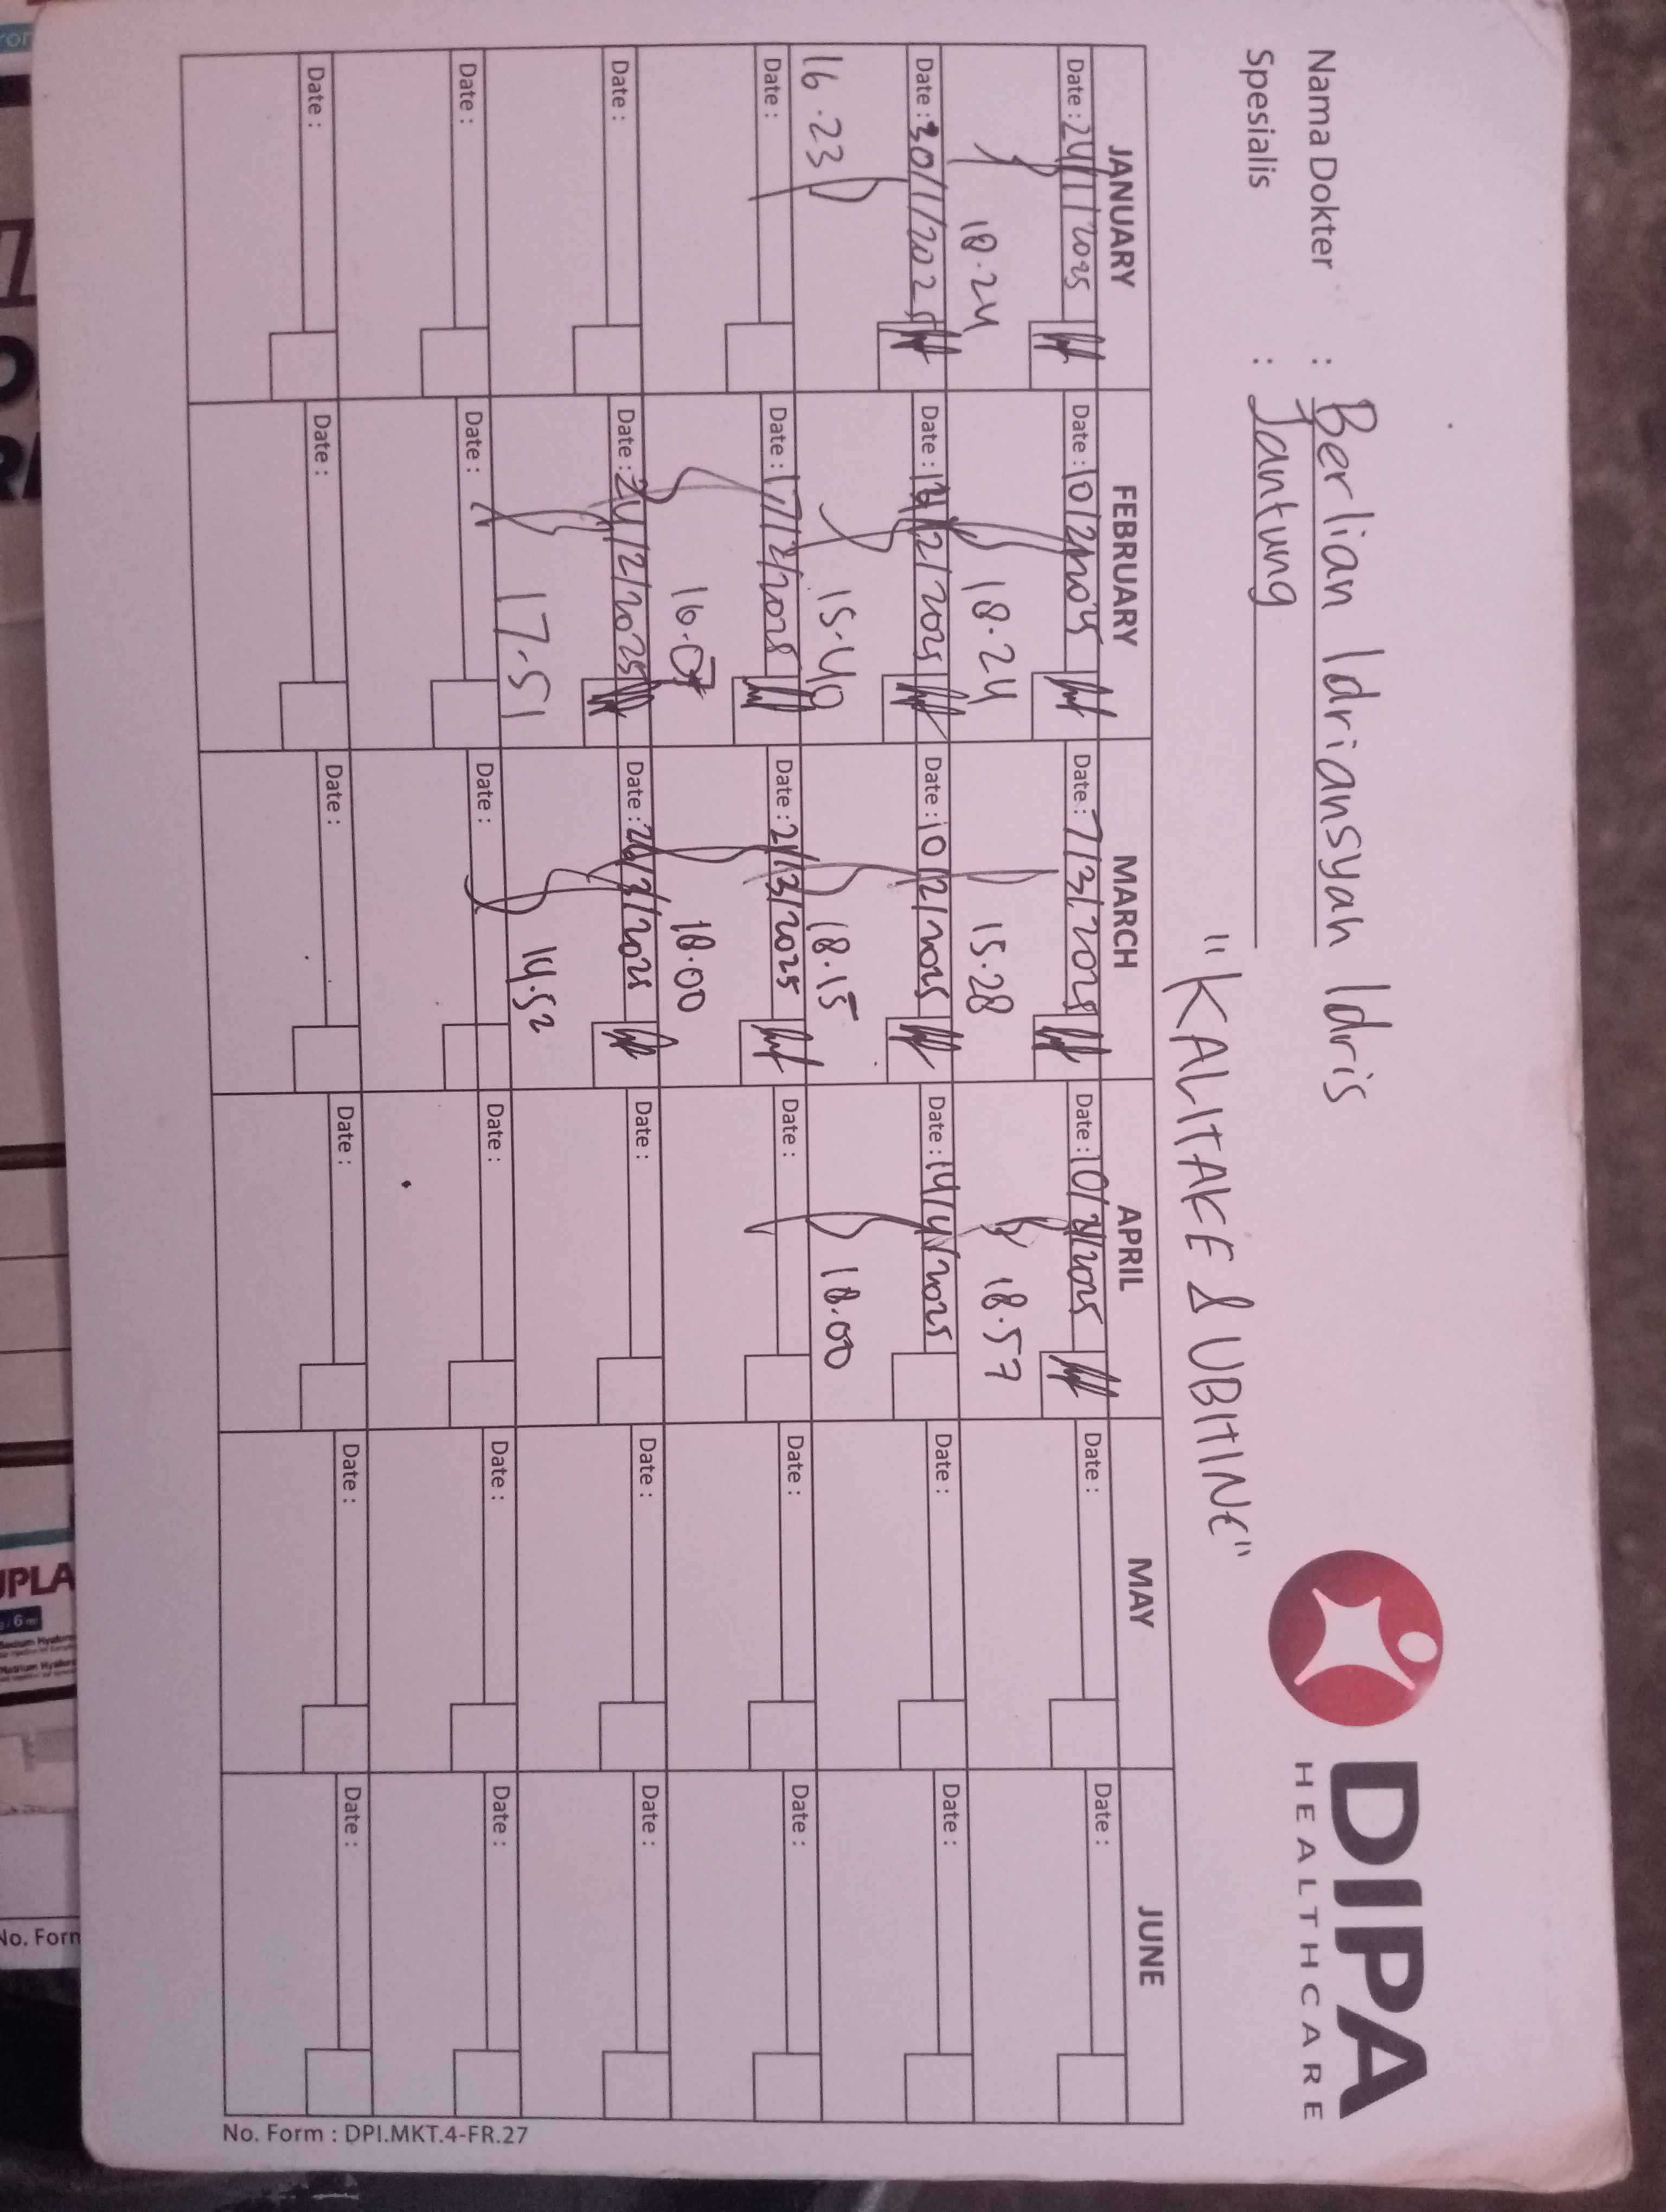 Nama Dokter : Berlian Idriansyah Idris
Spesialis : Jantung
DIPA
HEALTHCARE
"KALITAKE & UBITINE"
JANUARY FEBRUARY MARCH APRIL MAY JUNE
Date : 24/1/2025 Date : 10/2/2025 Date : 7/3/2025 Date : 10/4/2025 Date : Date :
18.24 18.24 15.28 18.57
Date : 30/1/2025 Date : 13/2/2025 Date : 10/2/2025 Date : 14/4/2025 Date : Date :
16.23 15.40 18.15 18.00
Date : Date : 17/2/2025 Date : 21/3/2025 Date : Date : Date :
16.07 18.00
Date : Date : 24/2/2025 Date : 26/3/2025 Date : Date : Date :
17.51 14.52
Date : Date : Date : Date : Date : Date :
Date : Date : Date : Date : Date : Date :
No. Form : DPI.MKT.4-FR.27
No. Form